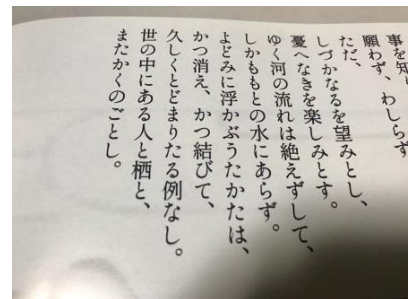 事を知り
願わず、わしらず
ただ、
しづかなるを望みとし、
憂へなきを楽しみとす。
ゆく河の流れは絶えずして、
しかももとの水にあらず。
よどみに浮かぶうたかたは、
かつ消え、かつ結びて、
久しくとどまりたる例なし。
世の中にある人と栖と、
またかくのごとし。